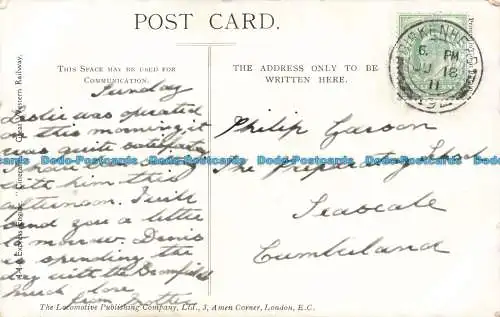 POST CARD.
THIS SPACE MAY BE USED FOR
COMMUNICATION.
THE ADDRESS ONLY TO BE
WRITTEN HERE.
Sunday
Leslie was operated
on this morning it
was quite satisfactory
I have been sitting
with him this
afternoon. I will
send you a letter
to-morrow. Denis
is spending the
day with the
much love
from Mother
Philip
The Preparatory School
Seascale
Cumberland
BIRKENHEAD
6 PM
JU 18
11
Great Western Railway.
Dodo-Postcards Dodo-Postcards Dodo-Postcards Dodo-Postcards Dodo-Postcards
The Locomotive Publishing Company, Ltd., 3, Amen Corner, London, E.C.